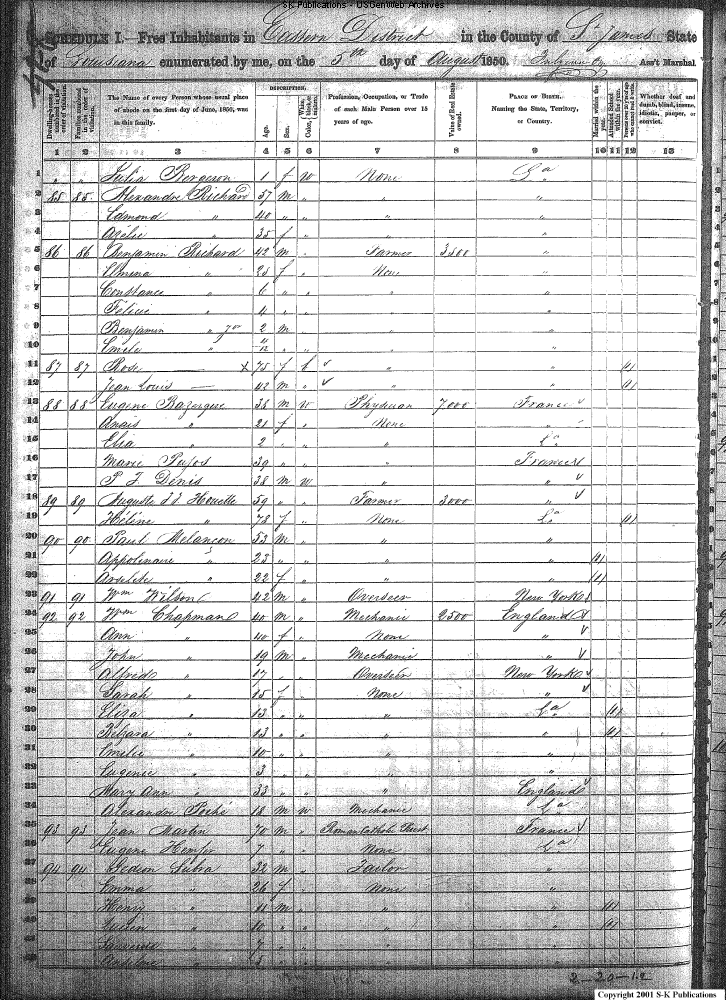 S-K Publications - USGenWeb Archives
SCHEDULE I.—Free Inhabitants in Eastern District in the County of St James State
of Louisiana enumerated by me, on the 5th day of August 1850. Ass't Marshal
The Name of every Person whose usual place of abode on the first day of June, 1850, was in this family.
DESCRIPTION.
Age.
Sex.
Profession, Occupation, or Trade of each Male Person over 15 years of age.
Value of Real Estate owned.
PLACE OF BIRTH. Naming the State, Territory, or Country.
Married within the year.
Attended School within the year.
Whether deaf and dumb, blind, insane, idiotic, pauper, or convict.
1 2 3 4 5 6 7 8 9 10 11 12 13
1 " " Julia Bergeron 1 f w None La
2 85 85 Alexandre Richard 57 m " " "
3 Edmond " 40 " " " "
4 Azélie " 35 f " " "
5 86 86 Benjamin Richard 42 m " Farmer 3500 "
6 Elmina " 25 f " None "
7 Constance " 6 " " " "
8 " 4 " " " "
9 Benjamin " Jor 2 m " "
10 Emile " " " "
11 87 87 Rose — x 75 f " " /1/
12 Jean Louis — 42 m " " " /1/
13 88 88 Eugene 38 m w Physician 7000 France
14 Anais " 21 f " None "
15 " 2 " " " La
16 Marie 39 " " " France
17 P. J. Denis 38 m w " "
18 89 89 Auguste 59 " " Farmer 3000 "
19 Héléne " 78 f " None La /1/
20 90 90 Paul Melancon 53 m " " "
21 Appolinaire " 23 " " " " /1/
22 " 22 f " " " /1/
23 91 91 Wm Wilson 42 m " Overseer New York
24 92 92 Wm Chapman 40 m " Mechanic 2500 England
25 Ann " 40 f " None "
26 John " 19 m " Mechanic "
27 Alfred " 17 " " Overseer New York
28 Sarah " 15 f " None "
29 Eliza " 13 " " " La /1/
30 " 13 " " " " /1/
31 Emelie " 10 " " " "
32 Eugenie " 3 " " " "
33 Mary Ann " 33 " " " England
34 Alexandre Poché 18 m w Mechanic La
35 93 93 Jean Martin 70 m " Roman Catholic Priest France
36 Eugene 7 " " None La
37 94 94 Gedeon Subra 32 m " Tailor "
38 Emma " 26 f " None "
39 Henry " 11 m " " " /1/
40 " 10 " " " " /1/
41 " 7 " " " "
42 " 3 " " " "
2-20-12
Copyright 2001 S-K Publications